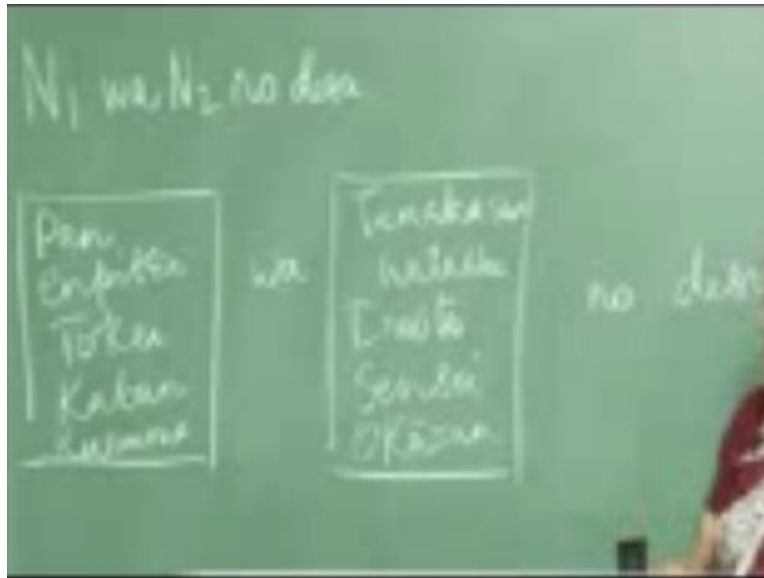 N1 wa N2 no desu
Pan
Enpitsu
Tokei
Kaban
Kuruma
wa
Tanakasan
watashi
Imōto
Sensei
Okāsan
no desu